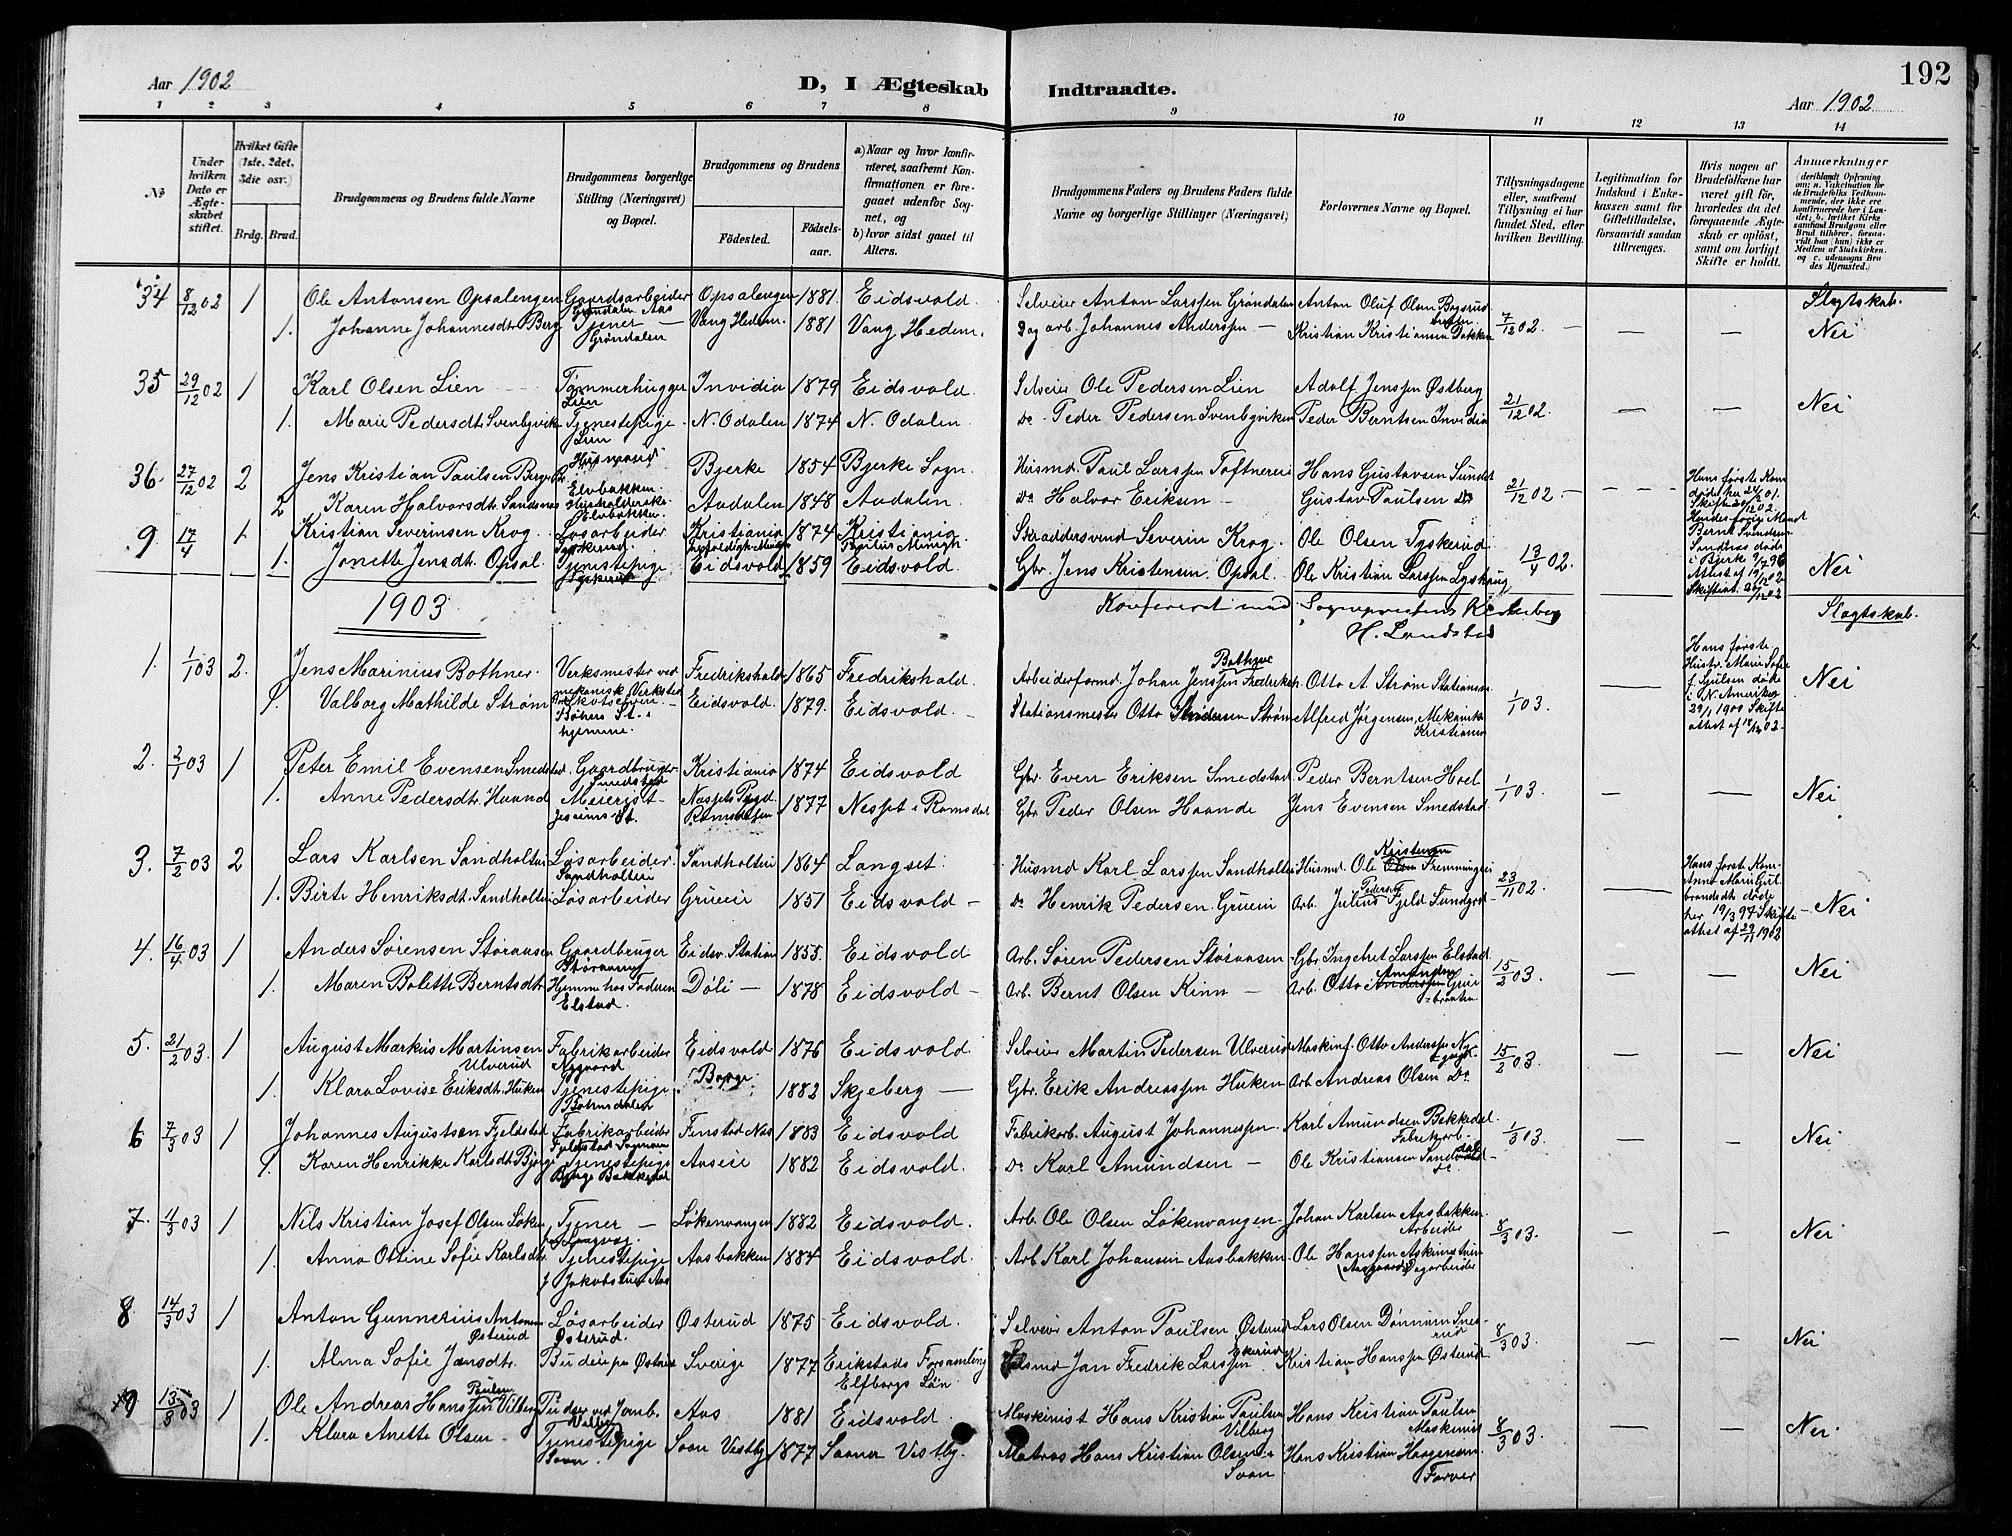 192
Aar 1902
D, I Ægteskab Indtraadte.
Aar 1902
1 2 3 4 5 6 7 8 9 10 11 12 13 14
No
Under hvilken Dato er Ægteskabet stiftet.
Hvilket Gifte (1ste, 2det, 3die osv.)
Brdg. Brud.
Brudgommens og Brudens fulde Navne
Brudgommens borgerlige Stilling (Næringsvei) og Bopæl.
Brudgommens og Brudens
Fødested.
Fødselsaar.
a) Naar og hvor konfirmeret, saafremt Konfirmationen er foregaaet udenfor Sognet, og
b) hvor sidst gaaet til Alters.
Brudgommens Faders og Brudens Faders fulde Navne og borgerlige Stillinger (Næringsvei)
Forlovernes Navne og Bopæl.
Tillysningsdagene eller, saafremt Tillysning ei har fundet Sted, efter hvilken Bevilling.
Legitimation for Indskud i Enkekassen samt for Giftetilladelse, forsaavidt saadan tiltrænges.
Hvis nogen af Brudefolkene har været gift før, hvorledes da det foregaaende Ægteskab er opløst, samt om lovligt Skifte er holdt.
Anmærkninger (deriblandt Oplysning om: a. Vakcination for de Brudefolks Vedkommende, der ikke ere konfirmerede her i Landet; b. hvilket Kirkesamfund Brudgom eller Brud tilhører, forsaavidt han (hun) ikke er Medlem af Statskirken, og c. udensogns Brudes Hjemsted.
34 8/12 02 1 Ole Antonsen Opsalengen Gaardsarbeider Opsalengen 1881. Eidsvold. Selveier Anton Larssen Grøndalen Anton Oluf Olsen Slagtskab.
Grøndalen Aas
1. Johanne Johannesdt. Berg Tjener Vang Hedem. 1881 Vang Hedem. Dagarb. Johannes Anderssen Kristian Kristiansen Bakken 7/12 02. Nei
Grøndalen
35 29/12 02 1 Karl Olsen Lien Tømmerhugger Invidia 1879 Eidsvold. Selveier Ole Pedersen Lien Adolf Jenssen Østberg
Lien
1. Marie Pedersdt. Svenbyvik Tjenestepige N. Odalen 1874 N. Odalen Do Peder Pedersen Svenbyviken Peder Berntsen Invidia 21/12 02. Nei
Lien
36. 27/12 02 2 Jens Kristian Paulsen Husmand Bjerke 1854 Bjerke Sogn. Husmd. Paul Larssen Toftnereie Hans Gustavsen Sundet
Elvbakken.
2 Karen Halvorsdt. Sandsnes Husholderske Aadalen 1848 Aadalen Do Halvor Eriksen Gustav Paulsen Do 21/12 02.
Elvbakken.
Hans første Kone døde her 24/2 01. Skifte
9. 17/4 1. Kristian Severinsen Krog. Løsarbeider Kristiania 1874 Kristiania Skræddersvend Severin Krog. Ole Olsen Tyskerud
Tyskerud.
1. Jonette Jensdt. Opsal Tjenestepige Eidsvold 1859 Eidsvold. Gbr. Jens Kristensen Opsal. Ole Kristian Larssen 13/4 02. Nei
Tyskerud
1903
Konfereret med Sognepræstens
H. Landstad
Slagtskab.
1. 1/1 03 2. Jens Marinius Bothner. Verksmester ved Fredrikshald 1865 Fredrikshald. Arbeiderformd. Johan Jenssen Bothner Fredriksh. Otto A. Strøm Stationsm.
mekanisk Verksted
1. Valborg Mathilde Strøm Eidsvold. 1879. Eidsvold. Stationsmester Otto Strøm Alfred Jørgensen, Mekaniker 1/1 03. Nei
Bøhns St. Kristiania
hjemme.
Hans første Hustr. Marie Sofie døde i N. Amerika 29/1 1900 Skifte attest af
2. 2/1 03 1 Peter Emil Evensen Smedstad. Gaardbruger Kristiania 1874 Eidsvold Gbr. Even Eriksen Smedstad Peder Berntsen Hoel
Smedstad
1. Anne Pedersdt. Haand Meierist 1877 Nesset i Romsdal Gbr. Peder Olsen Haande Jens Evensen Smedstad 1/1 03. Nei
Jessems St. Romsdalen
3. 7/2 03 2 Lars Karlsen Sandholteie Løsarbeider. Sandholteie 1864 Langset. Husmd Karl Larssen Sandholtei Husmd. Ole Kristensen
Sandholteie
1. Birte Henriksdt. Sandholtei Løsarbeider Grueeie 1851 Eidsvold Do Henrik Pedersen Grueeie Arb. Julius Pedersen Fjeld Sundgrd 23/11 02. Nei
Hans første Kone Anne Marie Gulbrandsdt. døde her 19/3 97 Skifte attest af 29/11 1902
4. 16/4 03 1 Anders Sørensen Storaasen Gaardbruger Eidsv. Station 1855. Eidsvold Arb. Søren Pedersen Storaasen Gbr. Ingebret Larssen Elstad
1. Maren Boletthe Berntsdt. Hjemme hos Faderen Døli 1878 Eidsvold Arb. Bernt Olsen Kinn Arb. Otto Amundsen 15/2 03. Nei
Elstad. braaten
5. 21/2 03. 1 August Markus Martinsen Fabrikarbeider Eidsvold 1876 Eidsvold Selveier Martin Pedersen Ulverud Maskinf. Otto Anderssen
Ulverud Nygaard
1. Klara Lovise Eriksdt. Huken Tjenestepige Borge 1882 Skjeberg Gbr. Erik Andreassen Huken Arb. Andreas Olsen Do 15/2 03. Nei
6 7/3 03 1 Johannes Augustsen Fjeldstad Fabrikarbeider Finstad Aas 1883 Eidsvold Fabrikarb. August Johannessen Karl Amundsen Bekkedal
Fabrikarb.
1. Karen Henrikke Karlsdt. Bjørge Tjenestepige Aaseie 1882 Eidsvold. Do Karl Amundsen Ole Kristiansen 1/3 03. Nei
Bjørge Bekkedal
7. 11/3 03 1 Nils Kristian Josef Olsen Løken Tjener Løkenvangen 1882 Eidsvold. Arb. Ole Olsen Løkenvangen Johan Karlsen Aasbakken
Arbeider
1. Anna Ottine Sofie Karlsdt. Tjenestepige Aasbakken 1884 Eidsvold. Arb Karl Johansen Aasbakken Ole Hanssen 8/3 03. Nei
Jakobstuen Aas Dagarbeider
8 14/3 03 1 Anton Gunnerius Antonsen Løsarbeider Østerud 1875 Eidsvold. Selveier Anton Paulsen Østerud Lars Olsen Dønnum
Østerud Østerud.
1. Alma Sofie Jansdt. Sverige 1877 Erikstads Forsamling Husmd Jan Fredrik Larssen Kristian Hanssen Østerud 8/3 03. Nei
Elfborgs Län
9 13/3 03 1 Ole Andreas Hanssen Paulsen Vilberg Pudser ved Jernb. Aas 1881 Eidsvold Maskinist Hans Kristian Paulsen Hans Kristian Paulsen
Vilberg Vilberg Maskinist
1. Klara Anette Olsen Tjenestepige Soon Vestby 1877 Saaner Vestby. Matros Hans Kristian Olsen Hans Kristian 8/3 03. Nei
Soon. Soon Farver